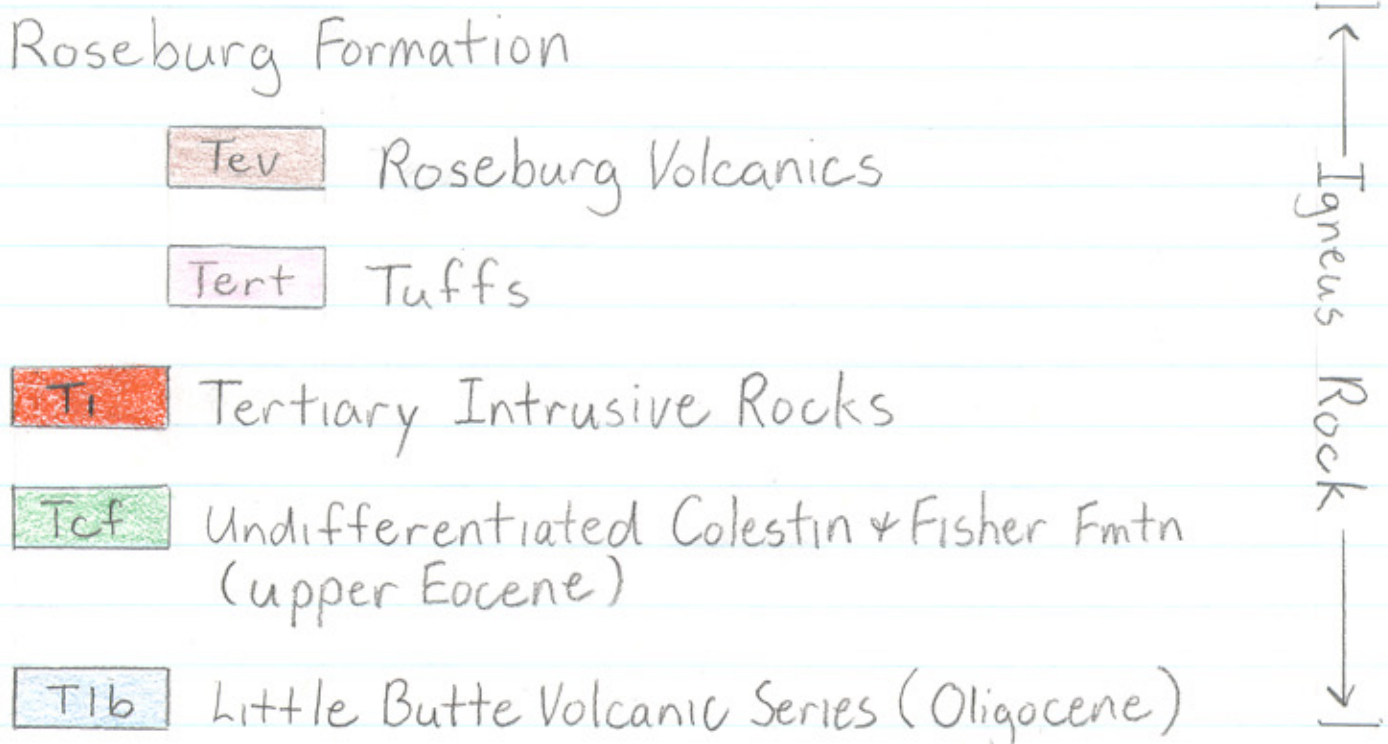 Roseburg Formation
Tev Roseburg Volcanics
Tert Tuffs
Ti Tertiary Intrusive Rocks
Tcf Undifferentiated Colestin & Fisher Fmtn
(upper Eocene)
Tlb Little Butte Volcanic Series (Oligocene)
Igneus Rock